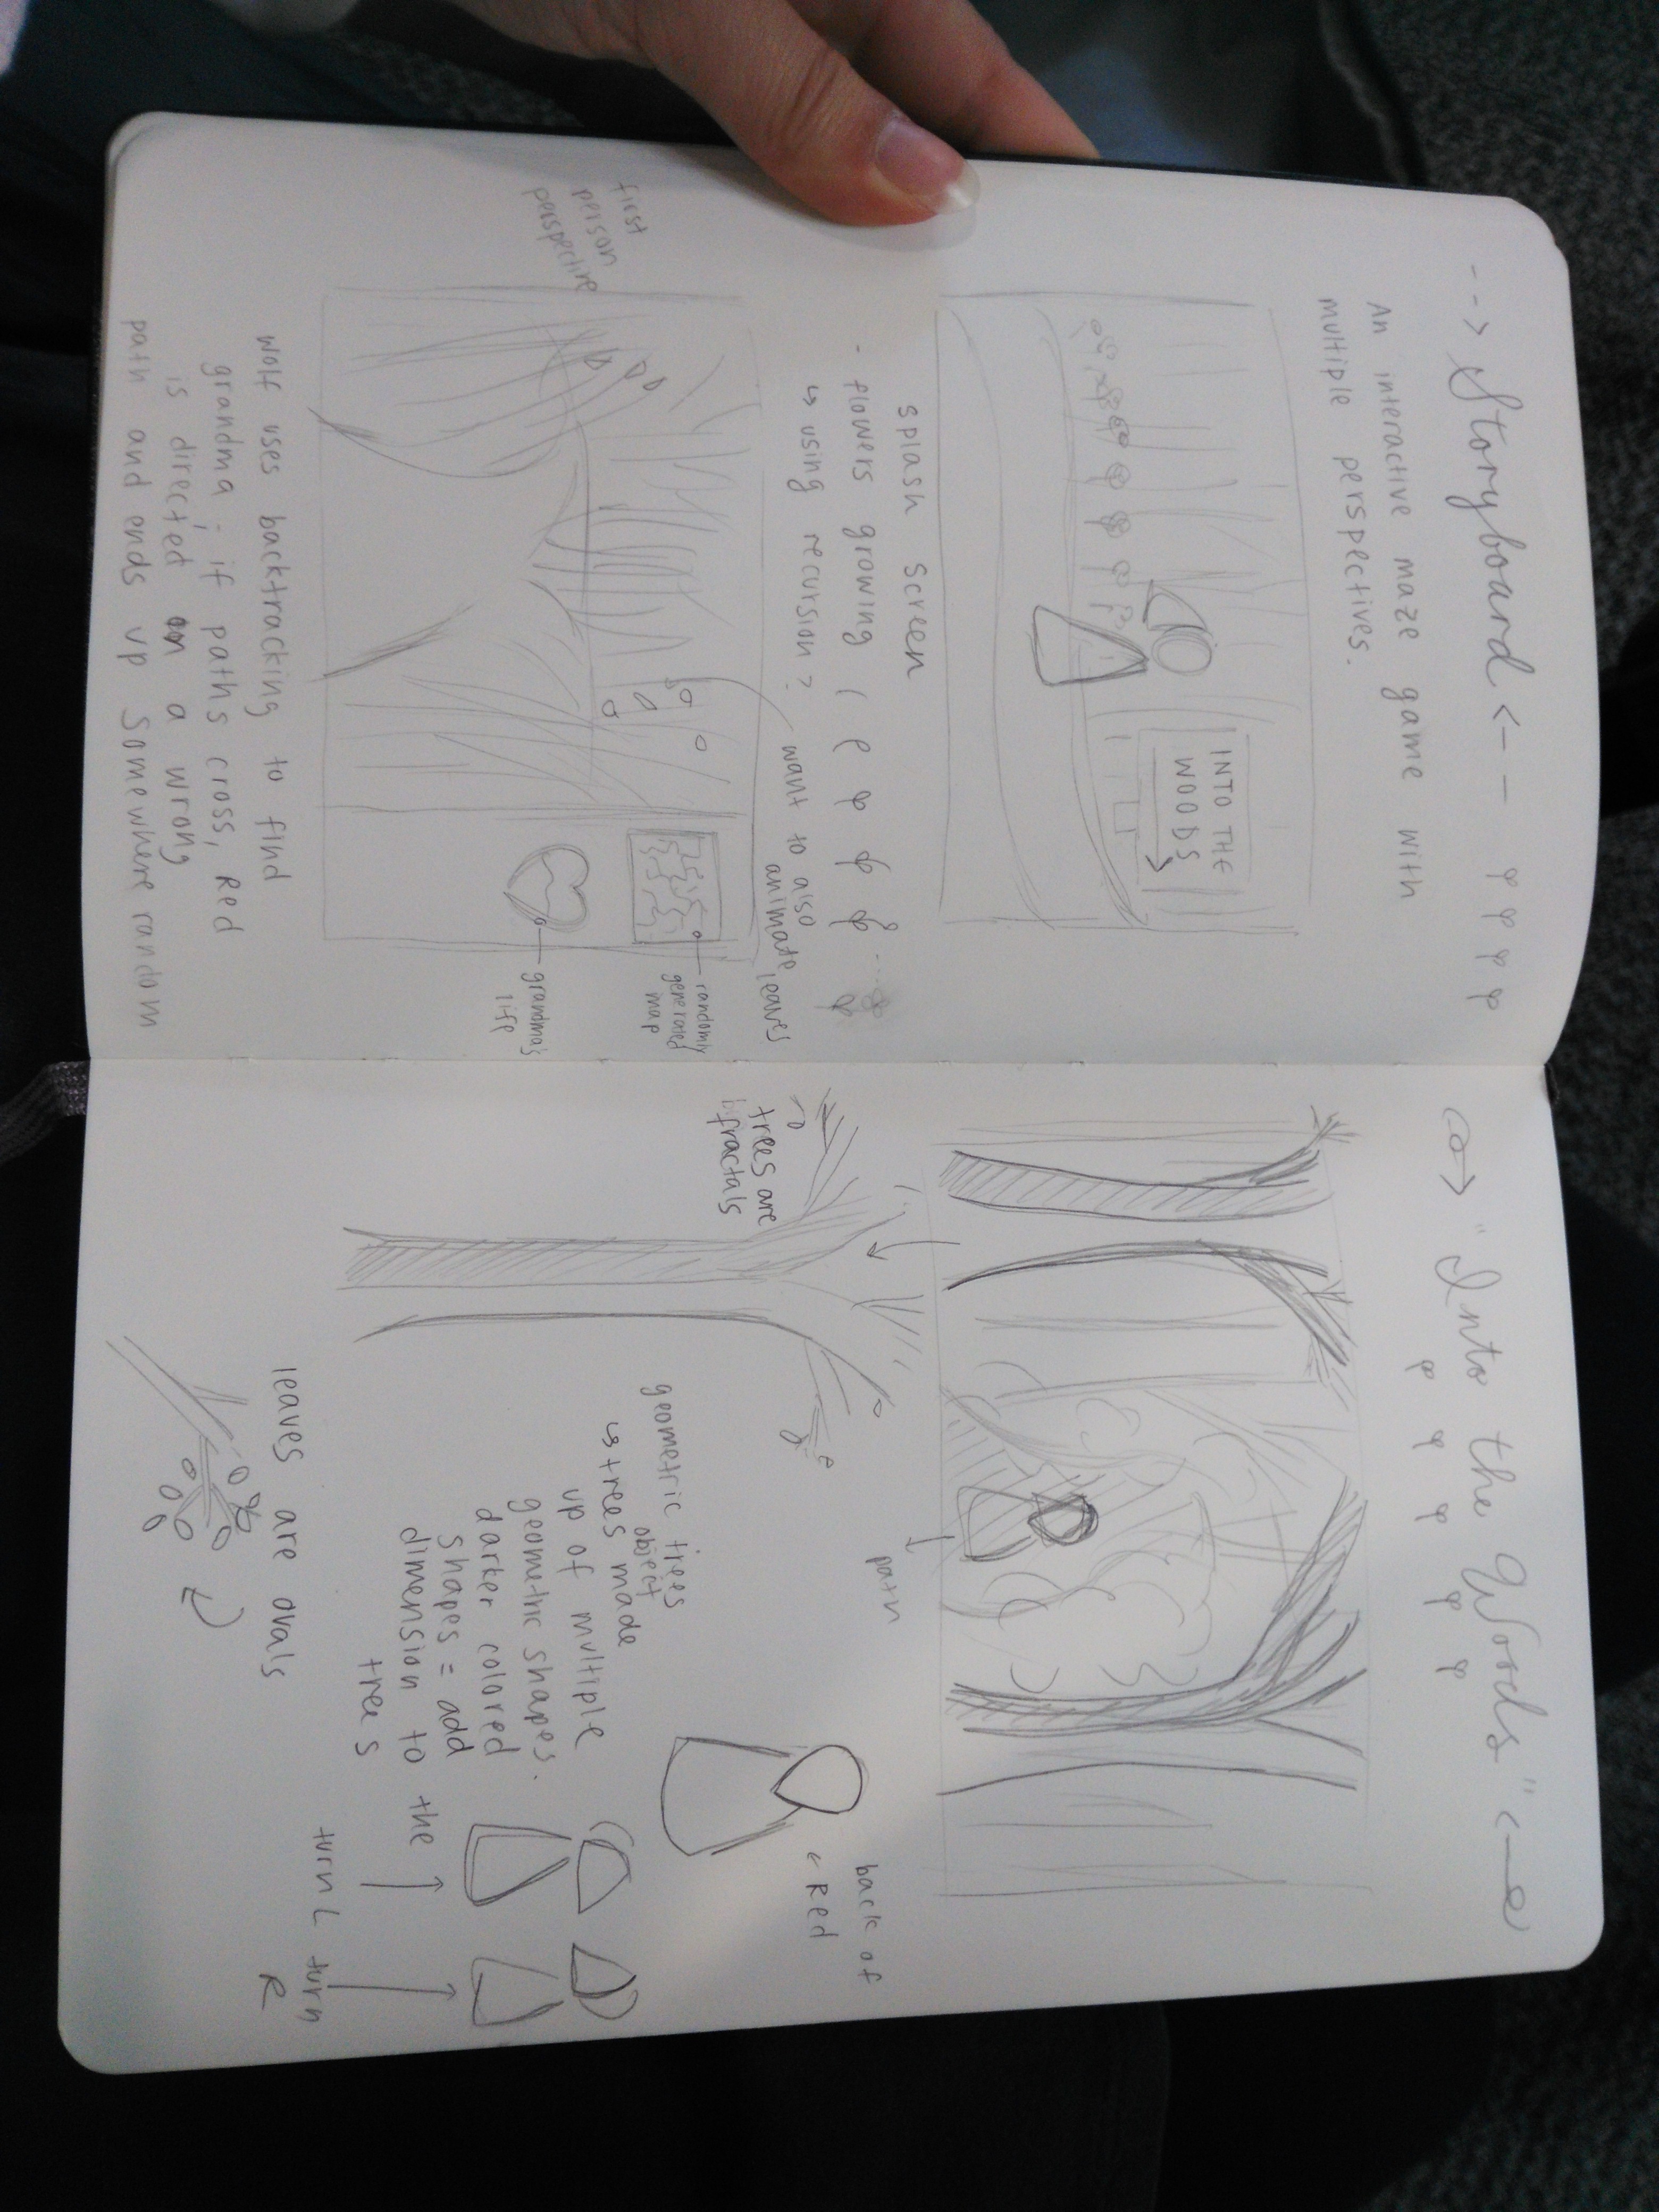 --> Storyboard <--
An interactive maze game with
multiple perspectives.
INTO THE
WOODS
splash screen
- flowers growing
↳ using recursion?
want to also
animate leaves
first
person
perspective
randomly
generated
map
grandma's
life
wolf uses backtracking to find
grandma; if paths cross, Red
is directed on a wrong
path and ends up somewhere random
"Into the Woods"
path
trees are
fractals
back of
← Red
geometric trees
object
↳ trees made
up of multiple
geometric shapes.
darker colored
shapes = add
dimension to the
trees
turn L
turn
R
leaves are ovals